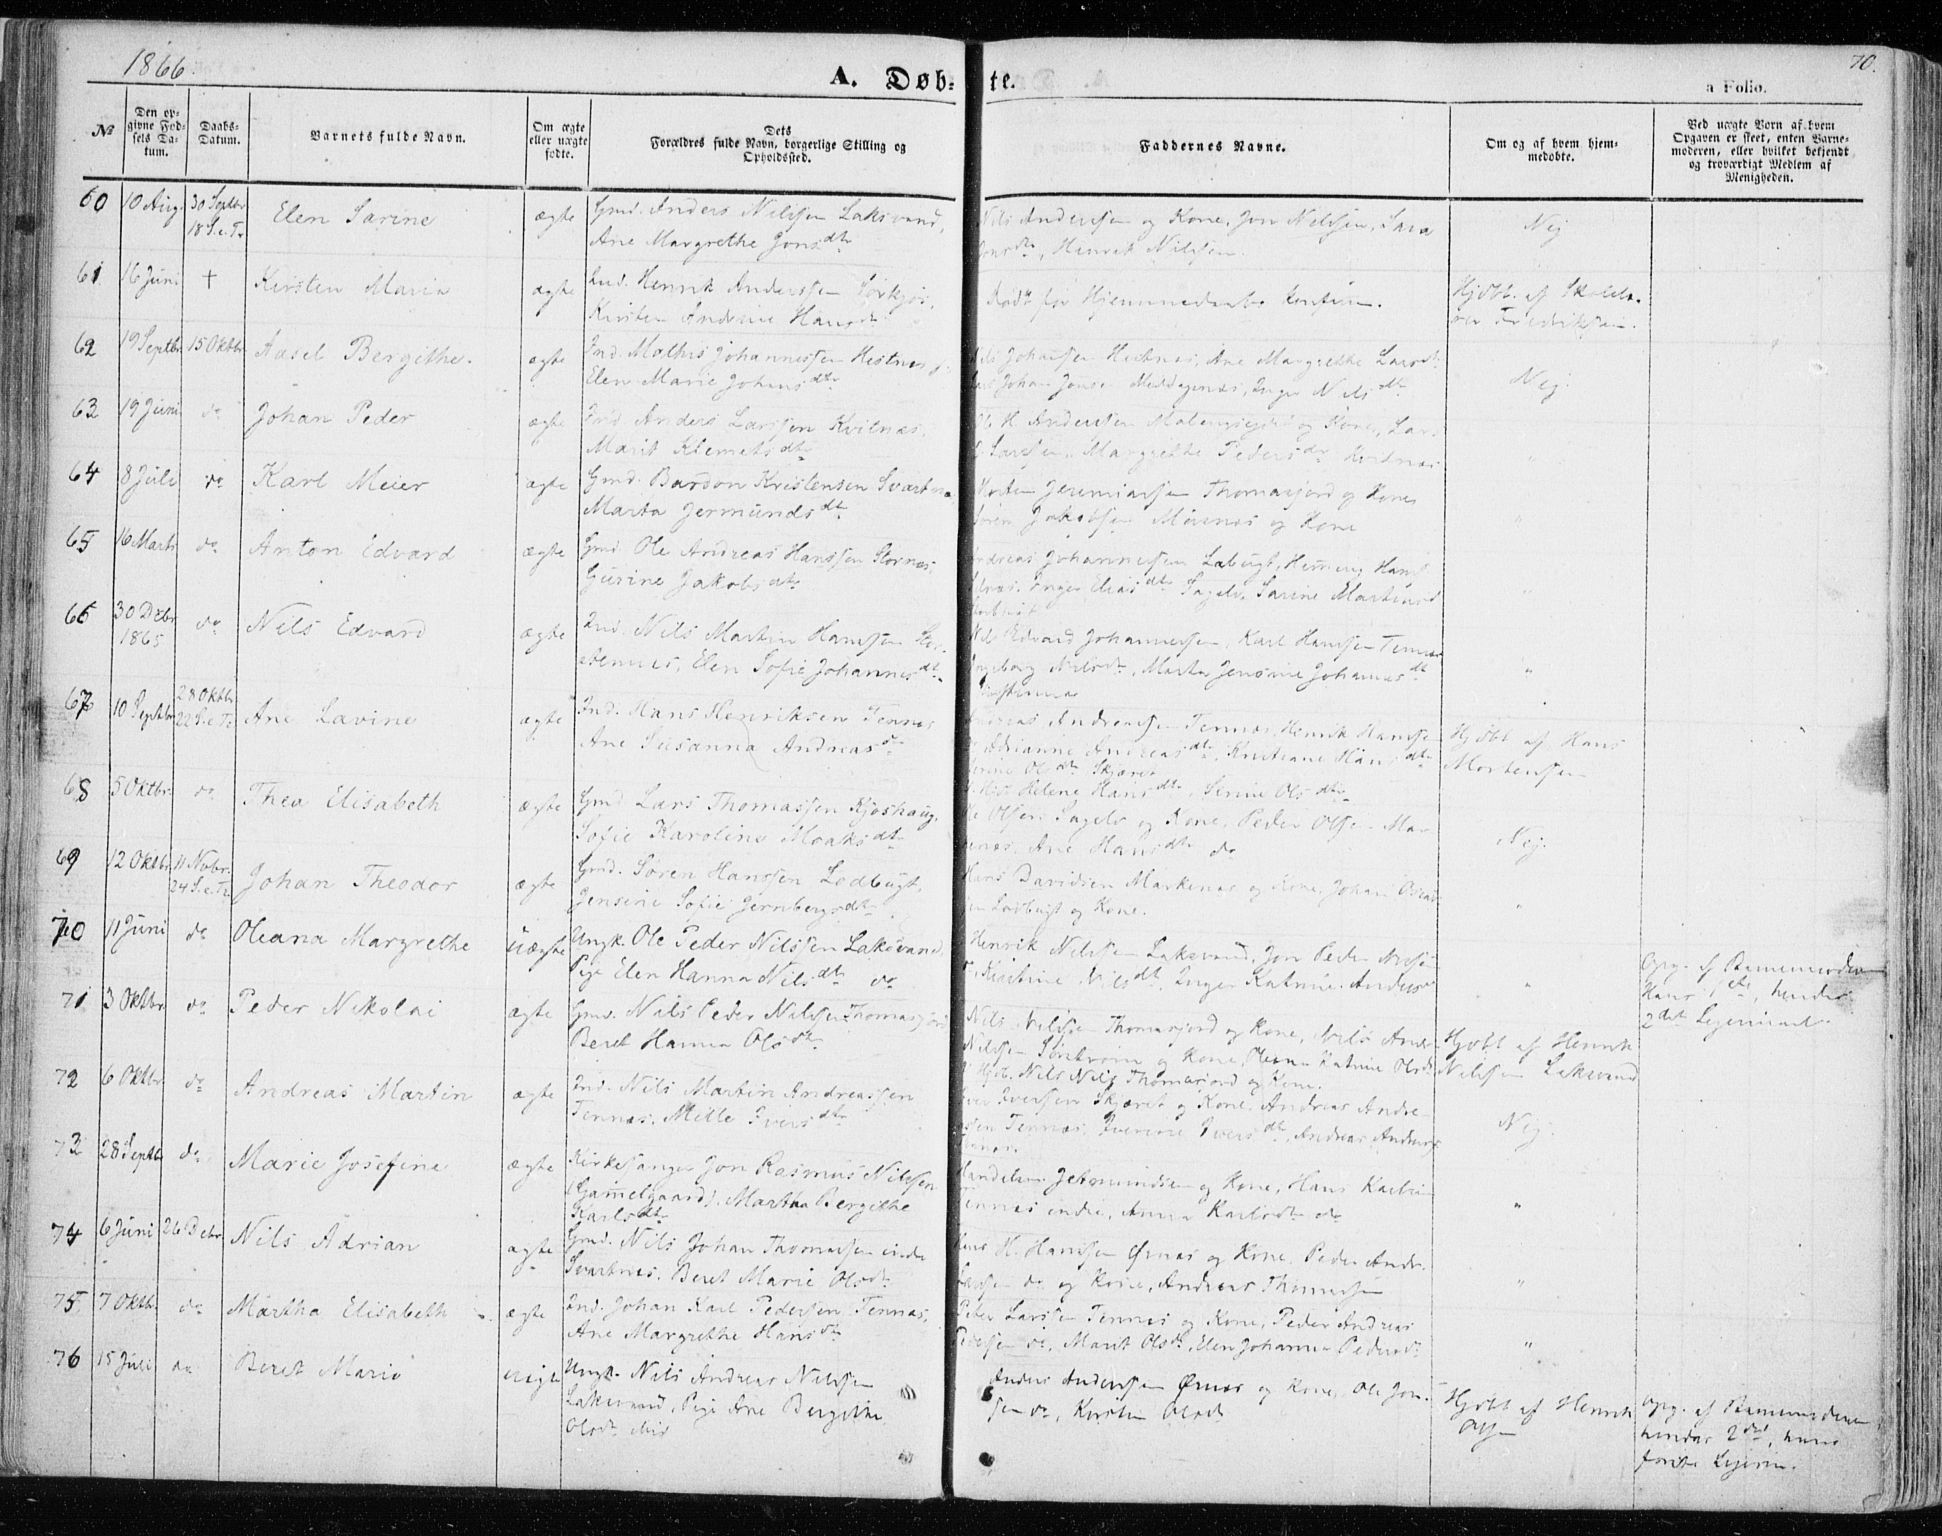 1866.
70.
A. Døb-te.
a Folio.
No
Den opgivne Fødsels Datum.
Daabs-Datum.
Barnets fulde Navn.
Om ægte eller uægte fødte.
Dets Forældres fulde Navn, borgerlige Stilling og Opholdssted.
Faddernes Navne.
Om og af hvem hjemmedøbte.
Ved uægte Børn af hvem Opgaven er skeet, enten Barnemoderen, eller hvilket bekjendt og troværdigt Medlem af Menigheden.
60 10 Aug. 30 Septbr 18 S.e.Tr. Elen Sarine ægte Gmd. Anders Nilssen Laksvand,
Ane Margrethe Jonsdtr
Nils Anderssen og Kone, Jon Nilssen, Sara
Henrik Nilssen.
Nej
61 16 Juni + Kirsten Maria ægte Ind. Henrik Anderssen Sørkjos,
Kirsten Andrine Hansdtr
for Hjemmedaaben
Hjdbt. af Skolelæ-
rer Fredriksen.
62 19 Septbr 15 Oktbr Aasel Bergithe. ægte Ind. Mathis Johannessen Hestnes
Elen Marie Johansdtr
Nils Johansen Hestnes, Ane Margrethe Larsdtr
Johan Jonsen Inger Nilsdtr
Nej.
63 19 Juni do Johan Peder ægte Ind Anders Larssen Kvitnæs.
Marit Klemetsdtr
H. Anderssen og Kone, Lars
Larssen, Margrethe Pedersdtr Kvitnæs
"
64 8 Juli do Karl Meier ægte Gmd. Bardon Kristensen Svartnes
Marta Jermundsdtr
Morten Jeremiassen Thomasjord og Kone
Søren Jakobsen og Kone
"
65 16 Marts do Anton Edvard ægte Gmd. Ole Andreas Hanssen Stornes,
Gurine Jakobsdtr
Andreas Johannessen Hans
Inger Eliasdtr Sagelv. Sarine Martins
"
66 30 Debr 1865 do Nils Edvard ægte Ind. Nils Martin Hanssen
Elen Sofie Johannesdtr
Nils Edvard Johannessen, Karl Hanssen Tennes
Ingeborg Nilsdtr, Marta Jensine Johannesdtr
"
67 10 Septbr 28 Oktbr 22 S.e.Tr. Ane Lavine ægte Ind. Hans Henriksen Tennes
Ane Susanna Andreasdr
Andreas Andreassen Tennes, Henrik Hanssen
Adrianne Andreasdtr, Kristiane Hansdtr
Olsdtr Skjæret
Hjdbt af Hans
Mortensen
68 5 Oktbr. do Thea Elisabeth ægte Gmd Lars Thomassen Kjoshaug,
Sofie Karoline Moaksdtr
Helene Hansdtr, Serine Olsdtr
Ole Olsen Sagelv og Kone, Peder Olsen
Ane Hansdtr do
Nej.
69 12 Oktbr. 11 Novbr. 24 S.e.Tr. Johan Theodor ægte Gmd. Søren Hanssen Lodbugt,
Jensine Sofie Jernbergsdtr.
Hans Davidsen Markenes og Kone, Johan
Lodbugt og Kone.
"
70 11 Juni do Oleana Margrethe uægte Ungk. Ole Peder Nilssen Laksvand,
Pige Elen Hanna Nilsdtr do
Henrik Nilssen Laksvand, Jon Peder
Kristine Nilsdt, Inger Katrine Anders
"
Opg. af Barnemoderen
Hans 1ste, hendes
2det Leiermaal.
71 3 Oktbr do Peder Nikolai ægte Gmd. Nils Peder Nilssen Thomasjord
Beret Hanna Olsdtr.
Nils Nilssen Thomasjord og Kone, Nils Andr.
Nilssen og Kone, Olean Katrine Olsdr
Nils Nils Thomasjord og Kone.
Hjdbt af Henrik
Nilssen Laksvand
72 6 Oktbr do Andreas Martin ægte Ind. Nils Martin Andreassen
Tennes. Mille Iversdtr
Iver Iverssen Skjæret og Kone, Andreas Andre-
assen Tennes, Iverine Iversdt, Andreas Anders
Nej.
73 28 Septbr do Marie Josefine ægte Kirkesanger Jon Rasmus Nilssen
(Gammelgaard). Martha Bergithe
Karlsdtr
og Kone, Hans
Tennes indre, Anna Karlsdtr do
"
74 6 Juni 26 Debr Nils Adrian ægte Gmd. Nils Johan Thomassen indre
Svartnes. Beret Marie Olsdtr
Hans H. Hanssen Ørnes og Kone, Peder Andr.
Larssen do og Kone, Andreas Thomassen
"
75 7 Oktbr. do Martha Elisabeth ægte Ind. Johan Karl Pedersen Tennes,
Ane Margrethe Hansdtr
Peder Larssen Tennes og Kone, Peder Andreas
Pedersen do, Marit Olsdr, Elen Johanna Pedersdr
"
76 15 Juli do Beret Marie uægte Ungk. Nils Andreas Nilssen
Laksvand, Pige Ane Bergithe
Olsdtr
Anders Anderssen Ørnes og Kone, Ole Jon-
sen do, Kirstin Olsdt
Hjdbt af Henrik
Olsen
Opg. af Barnemoderen
hendes 2det, hans
første Leierm.